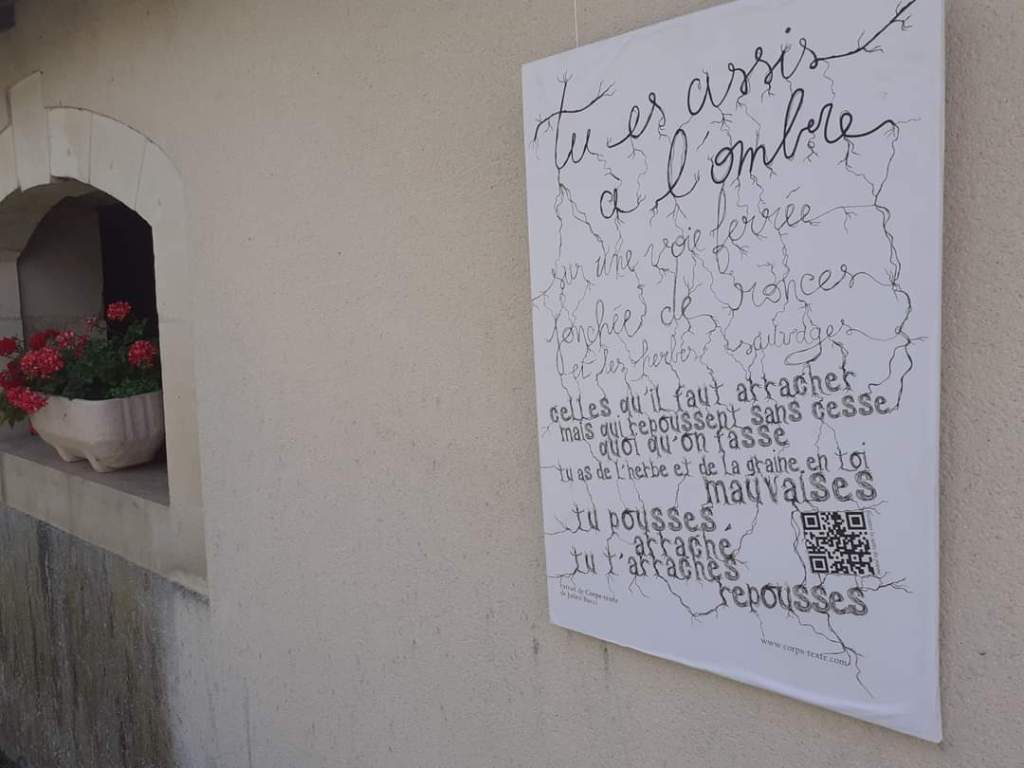 tu es assis
a l'ombre
sur une voie ferrée
jonchée de ronces
et des herbes sauvages
celles qu'il faut arracher
mais qui repoussent sans cesse
quoi qu'on fasse
tu as de l'herbe et de la graine en toi
mauvaises
tu pousses
arraché,
tu t'arraches
repousses
de Corps-texte
de Julien Bucci
www.corps-texte.com